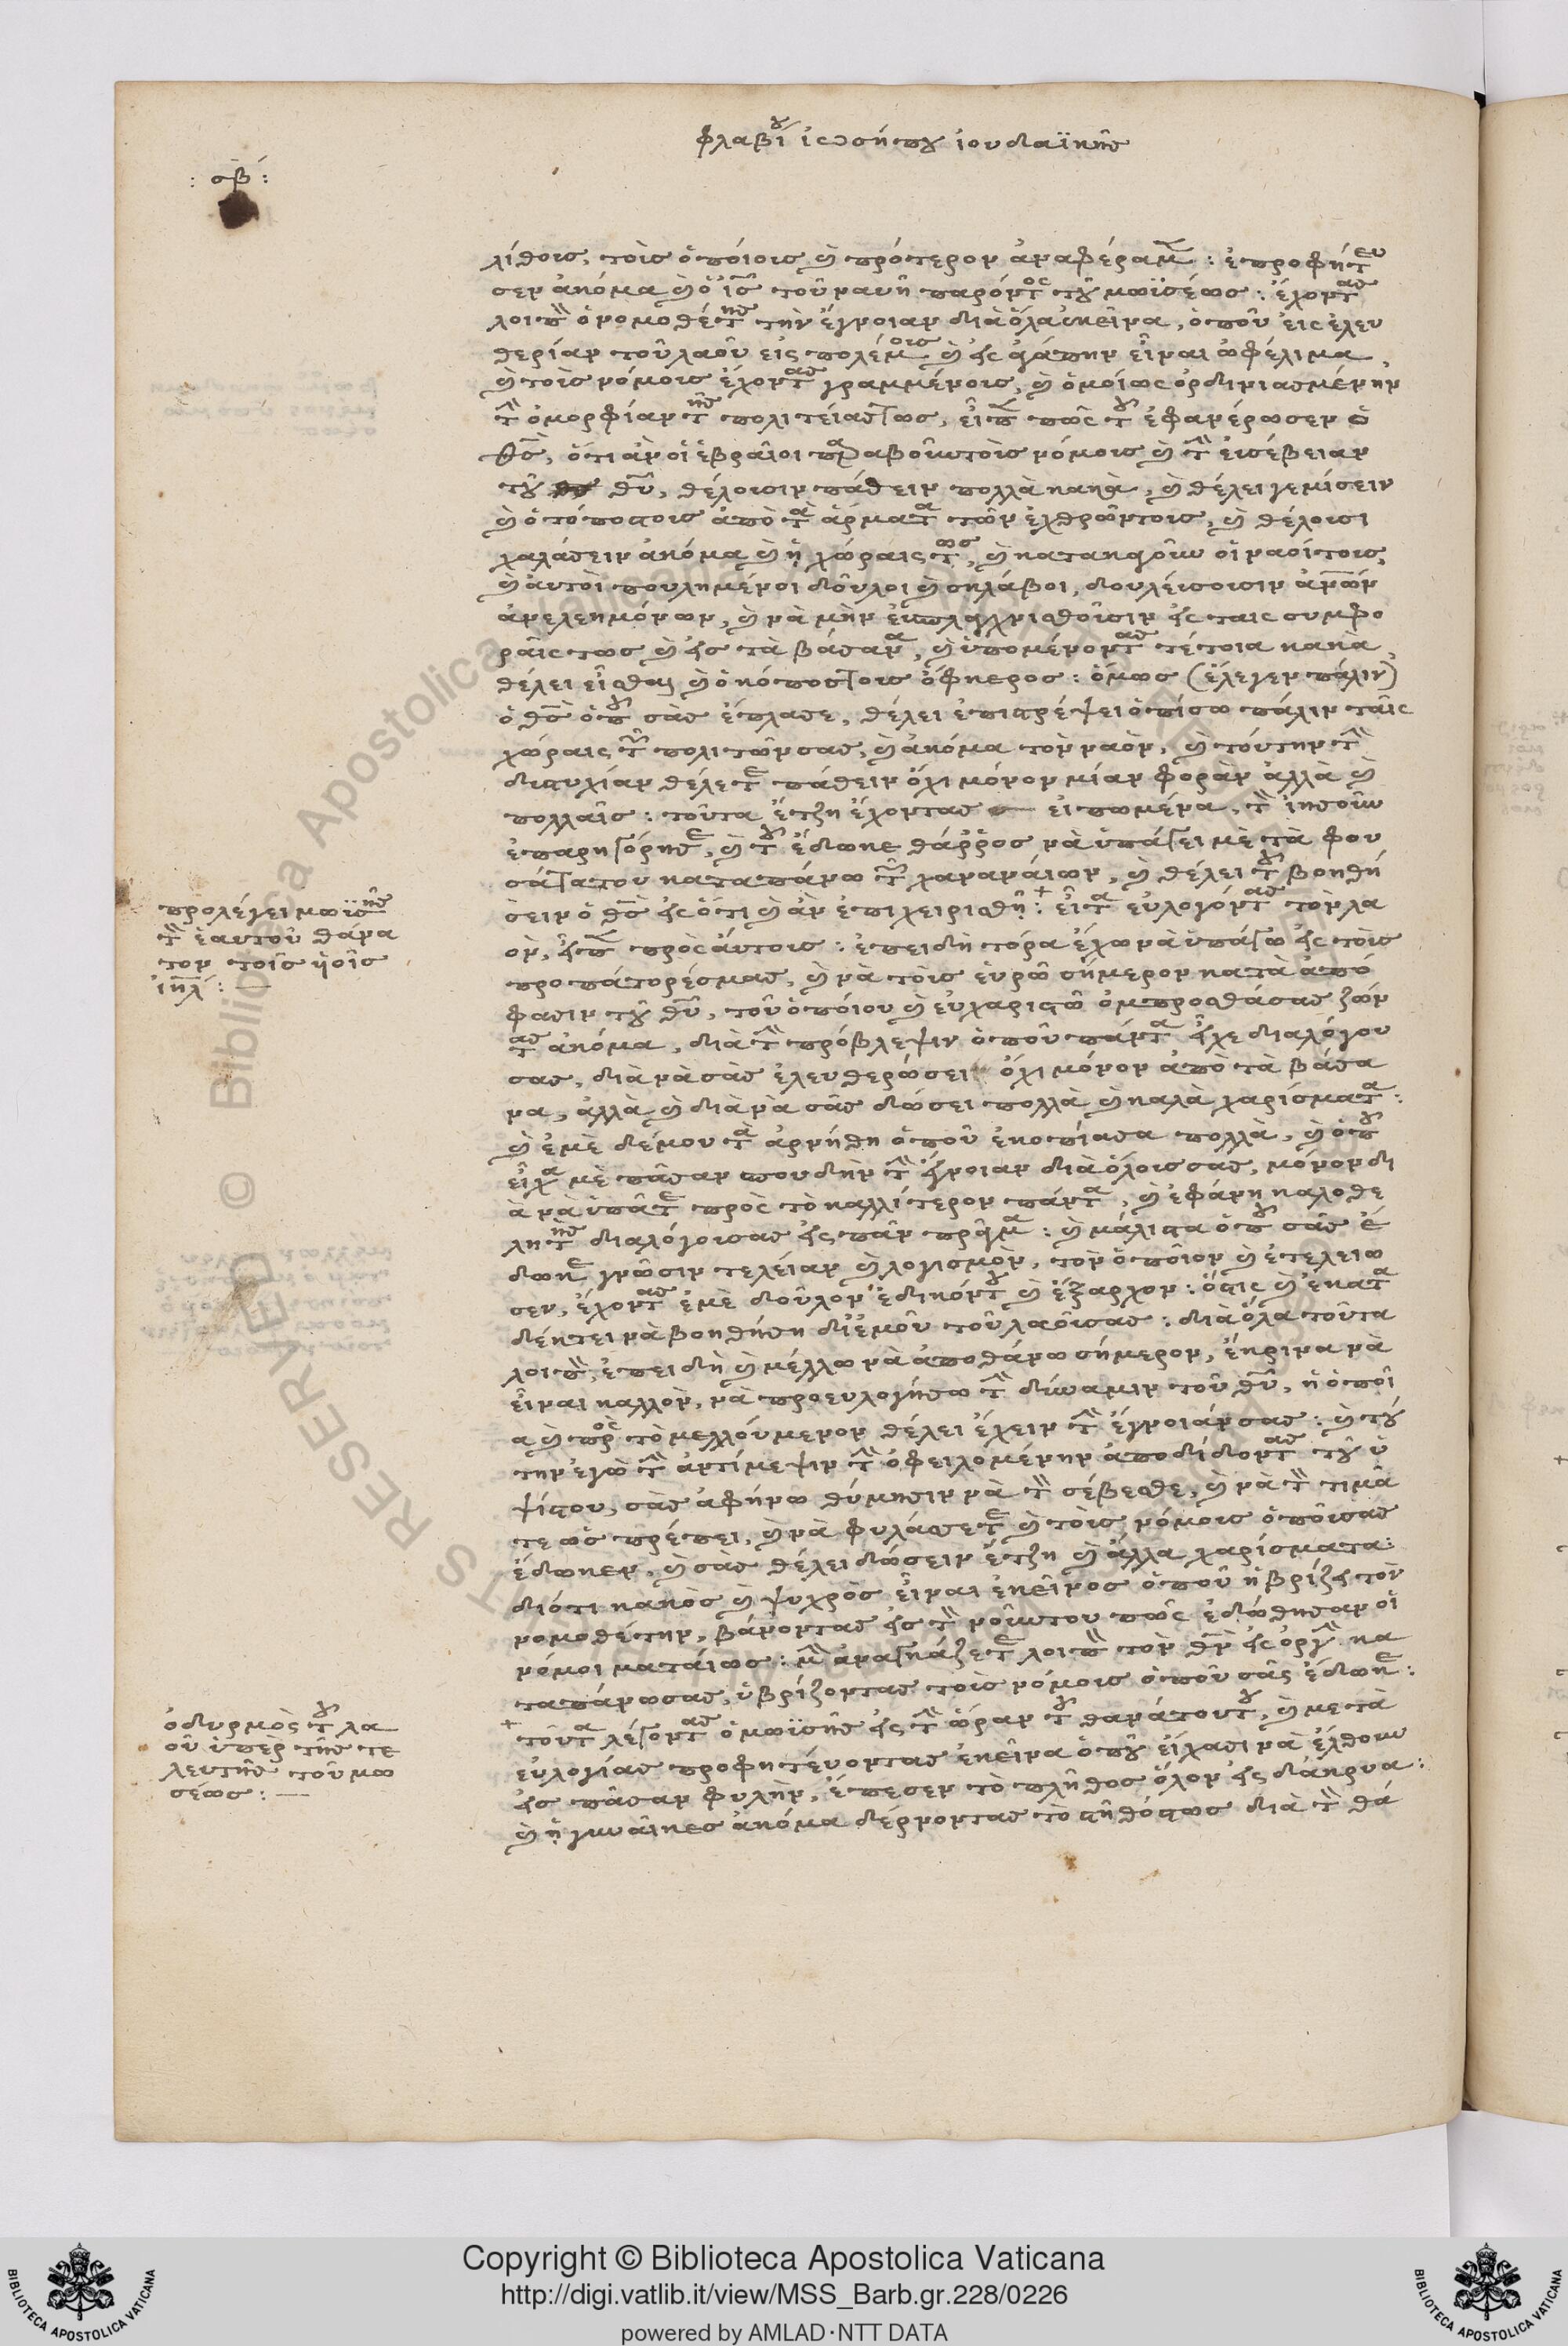 φλαβίου ἰωσήπου ἰουδαϊκῆς
: σβ :
λίθοις, τοὶς ὁποίοις καὶ πρότερον ἀναφέραμεν : ἐπροφήτευ
σεν ἀκόμα καὶ ὁ ἰησοῦς τοῦ ναυῆ παρόντος τοῦ μωϊσέως : ἔχοντας
λοιπὸν ὁ νομοθέτης τὴν ἔγνοιαν διὰ ὅλα ἐκεῖνα, ὁποῦ εἰς ἐλευ
θερίαν τοῦ λαοῦ εἰς πολέμοις καὶ εἰς ἀγάπην εἶναι ὠφέλιμα,
καὶ τοὶς νόμοις ἔχοντας γραμμένοις, καὶ ὁμοίως ὀρδινιασμένην
τὴν ὀμορφίαν τῆς πολιτείας τως, εἶπεν πῶς τοῦ ἐφανέρωσεν ὁ
θεὸς, ὅτι ἀν οἱ ἑβραῖοι παραβοῦν τοὶς νόμοις καὶ τὴν εἰσέβειαν
τοῦ θεοῦ, θέλουσιν πάθειν πολλὰ κακὰ, καὶ θέλει γεμίσειν
καὶ ὁ τόπος τοις ἀπὸ τὰ ἄρματα τῶν ἐχθρῶν τοις, καὶ θέλουσι
χαλάσειν ἀκόμα καὶ ἡ χώραις τως, καὶ κατακαοῦν οἱ ναοί τοις,
καὶ ἀυτοὶ πουλημένοι δοῦλοι καὶ σκλάβοι, δουλέυουσιν ἀνθρώπων
ἀνελεημόνων, καὶ νὰ μὴν ἐυσπλαγχνισθοῦσιν εἰς ταις συμφο
ραῖς τως καὶ εἰς τὰ βάσανα, καὶ ὑπομένοντας τέτοια κακὰ,
θέλει εἶσθαι καὶ ὁ κόπος τοις ὄφκερος : ὅμως (ἔλεγεν πάλιν)
ὁ θεὸς ὁποῦ σὰς ἔπλασε, θέλει ἐπιστρέψει ὀπίσω πάλιν ταῖς
χώραις τῶν πολιτῶν σας, καὶ ἀκόμα τὸν ναὸν, καὶ τούτην τὴν
δυστυχίαν θέλετε πάθειν ὄχι μόνον μίαν φορὰν ἀλλὰ καὶ
πολλαῖς : τοῦτα ἔτζη ἔχοντας εἰπωμένα, τὸν ἰησοῦν
ἐπαρηγόρησε, καὶ τοῦ ἔδωκε θάῤῥος νὰ ὑπάγει μὲ τὰ φου
σάτα του καταπάνω τῶν χαναναίων, καὶ θέλει τοῦ βοηθή
σειν ὁ θεὸς εἰς ὅτι καὶ ἀν ἐπιχειρισθῆ : + εἶτα ἐυλογόντας τὸν λα
ὸν, εἶπεν πρὸς ἀυτοις : ἐπειδὴ τόρα ἔχω νὰ ὑπάγω εἰς τοὶς
προπάτορές μας, καὶ νὰ τοὶς ἑυρῶ σήμερον κατὰ ἀπό
φασιν τοῦ θεοῦ, τοῦ ὁποίου καὶ ἐυχαριστῶ ὀμπροσθά σας ζῶν
τας ἀκόμα, διὰ τὴν πρόβλεψιν ὁποῦ πάντα εἶχε διαλόγου
σας, διὰ νὰ σὰς ἐλευθερώσει ὄχι μόνον ἀπὸ τὰ βάσα
να, ἀλλὰ καὶ διὰ νὰ σᾶς δώσει πολλὰ καὶ καλὰ χαρίσματα :
καὶ ἐμὲ δέμου τὰ ἀρνήθη ὁποῦ ἐκοπίασα πολλὰ, καὶ ὁποῦ
εἶχα μὲ πᾶσαν σπουδὴν τὴν ἔγνοιαν διὰ ὅλοις σας, μόνον δι
ὰ νὰ ὑπᾶτε πρὸς τὸ καλλίτερον πάντα, καὶ ἐφάνη καλοθε
λητὴς διαλόγου σας εἰς πᾶν πρᾶγμα : καὶ μάλιστα ὁποῦ σᾶς ἔ
δωκε γνῶσιν τελείαν καὶ λογισμὸν, τὸν ὁποῖον καὶ ἐτελείω
σεν, ἔχοντας ἐμὲ δοῦλον ἐδικόν του καὶ ἔξαρχον : ὅστις καὶ ἐκατα
δέητει νὰ βοηθήση δι' ἐμοῦ τοῦ λαοῦ σας : διὰ ὅλα τοῦτα
λοιπὸν, ἐπειδὴ καὶ μέλλω νὰ ἀποθάνω σήμερον, ἔκρινα νὰ
εἶναι καλλὸν, νὰ προευλογήσω τὴν δύναμιν τοῦ θεοῦ, ἡ ὁποῖ
α καὶ πρὸς τὸ μελλούμενον θέλει ἔχειν τὴν ἔγνοιάν σας : καὶ τού
την ἐγὼ τὴν ἀντίμεψιν τὴν ὀφειλομένην ἀποδίδοντας τοῦ ὑ
ψίστου, σὰς ἀφήνω θύμησιν νὰ τὸν σέβεσθε, καὶ νὰ τὸν τιμᾶ
τε ὡς πρέπει, καὶ νὰ φυλάσετε καὶ τοὶς νόμοις ὁποῦ σας
ἔδωκεν, καὶ σὰς θέλει δώσειν ἔτζη καὶ ἄλλα χαρίσματα :
διότι κακὸς καὶ ψυχρὸς εἶναι ἐκεῖνος ὁποῦ ἡβρίζει τὸν
νομοθέτην, βάνοντας εἰς τὸν νοῦν του πῶς ἐδώθησαν οἱ
νόμοι ματαίως : μὴν ἀναγκάζετε λοιπὸν τὸν θεὸν εἰς ὀργὴν κα
ταπάνω σας, ὑβρίζοντας τοὶς νόμοις ὁποῦ σᾶς ἔδωκε :
+ τοῦτα λέγοντας ὁ μωϊσὴς εἰς τὴν ὥραν τοῦ θανάτου του, καὶ με τὰ
ἐυλογίας προφητέυοντας ἐκεῖνα ὁποῦ εἴχασι νὰ ἔλθουν
εἰς πᾶσαν φυλὴν, ἔπεσεν τὸ πλῆθος ὅλον εἰς δάκρυα :
καὶ ἡ γυναῖκες ἀκόμα δέρνοντας τὸ στῆθός τως διὰ τὸν θά
προλέγει μωϊσῆς
τὸν ἑαυτοῦ θάνα
τον τοῖς υἱοῖς
ἰσραήλ : —
ὀδυρμὸς τοῦ λα
οῦ ὑπὲρ τῆς τε
λευτῆς τοῦ μω
σέως : —
© Biblioteca Apostolica Vaticana
RIGHTS RESERVED
Copyright © Biblioteca Apostolica Vaticana
http://digi.vatlib.it/view/MSS_Barb.gr.228/0226
powered by AMLAD·NTT DATA
BIBLIOTECA APOSTOLICA VATICANA
BIBLIOTECA APOSTOLICA VATICANA